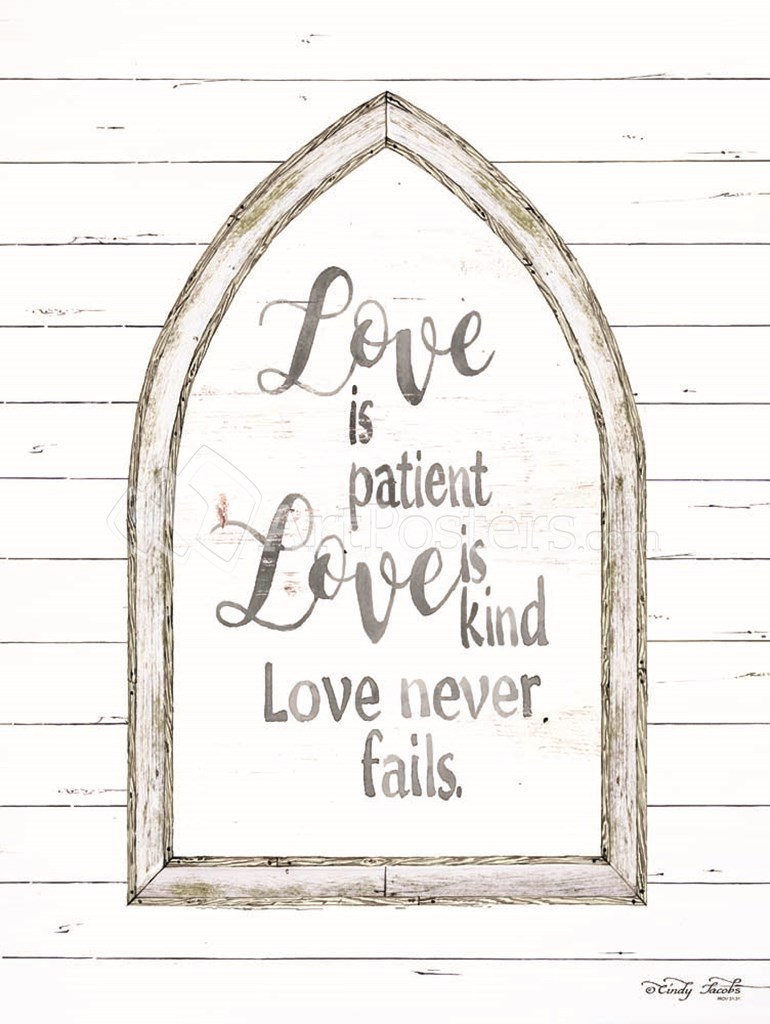 Love
is
patient
Love is
kind
Love never
fails.
ArtPosters.com
© Cindy Jacobs